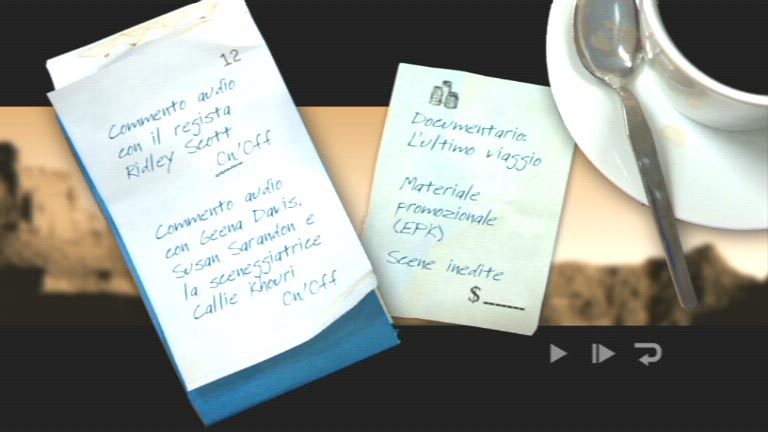 12
Commento audio
con il regista
Ridley Scott
On'Off
Commento audio
con Geena Davis,
Susan Sarandon e
la sceneggiatrice
Callie Khouri
On'Off
Documentario:
L'ultimo viaggio
Materiale
promozionale
(EPK)
Scene inedite
$